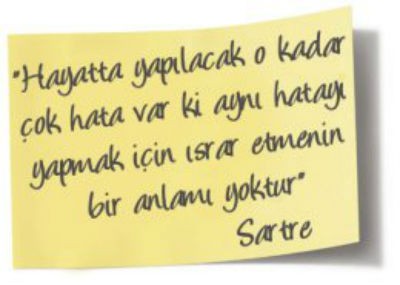 "Hayatta yapılacak o kadar
çok hata var ki aynı hatayı
yapmak için ısrar etmenin
bir anlamı yoktur"
Sartre